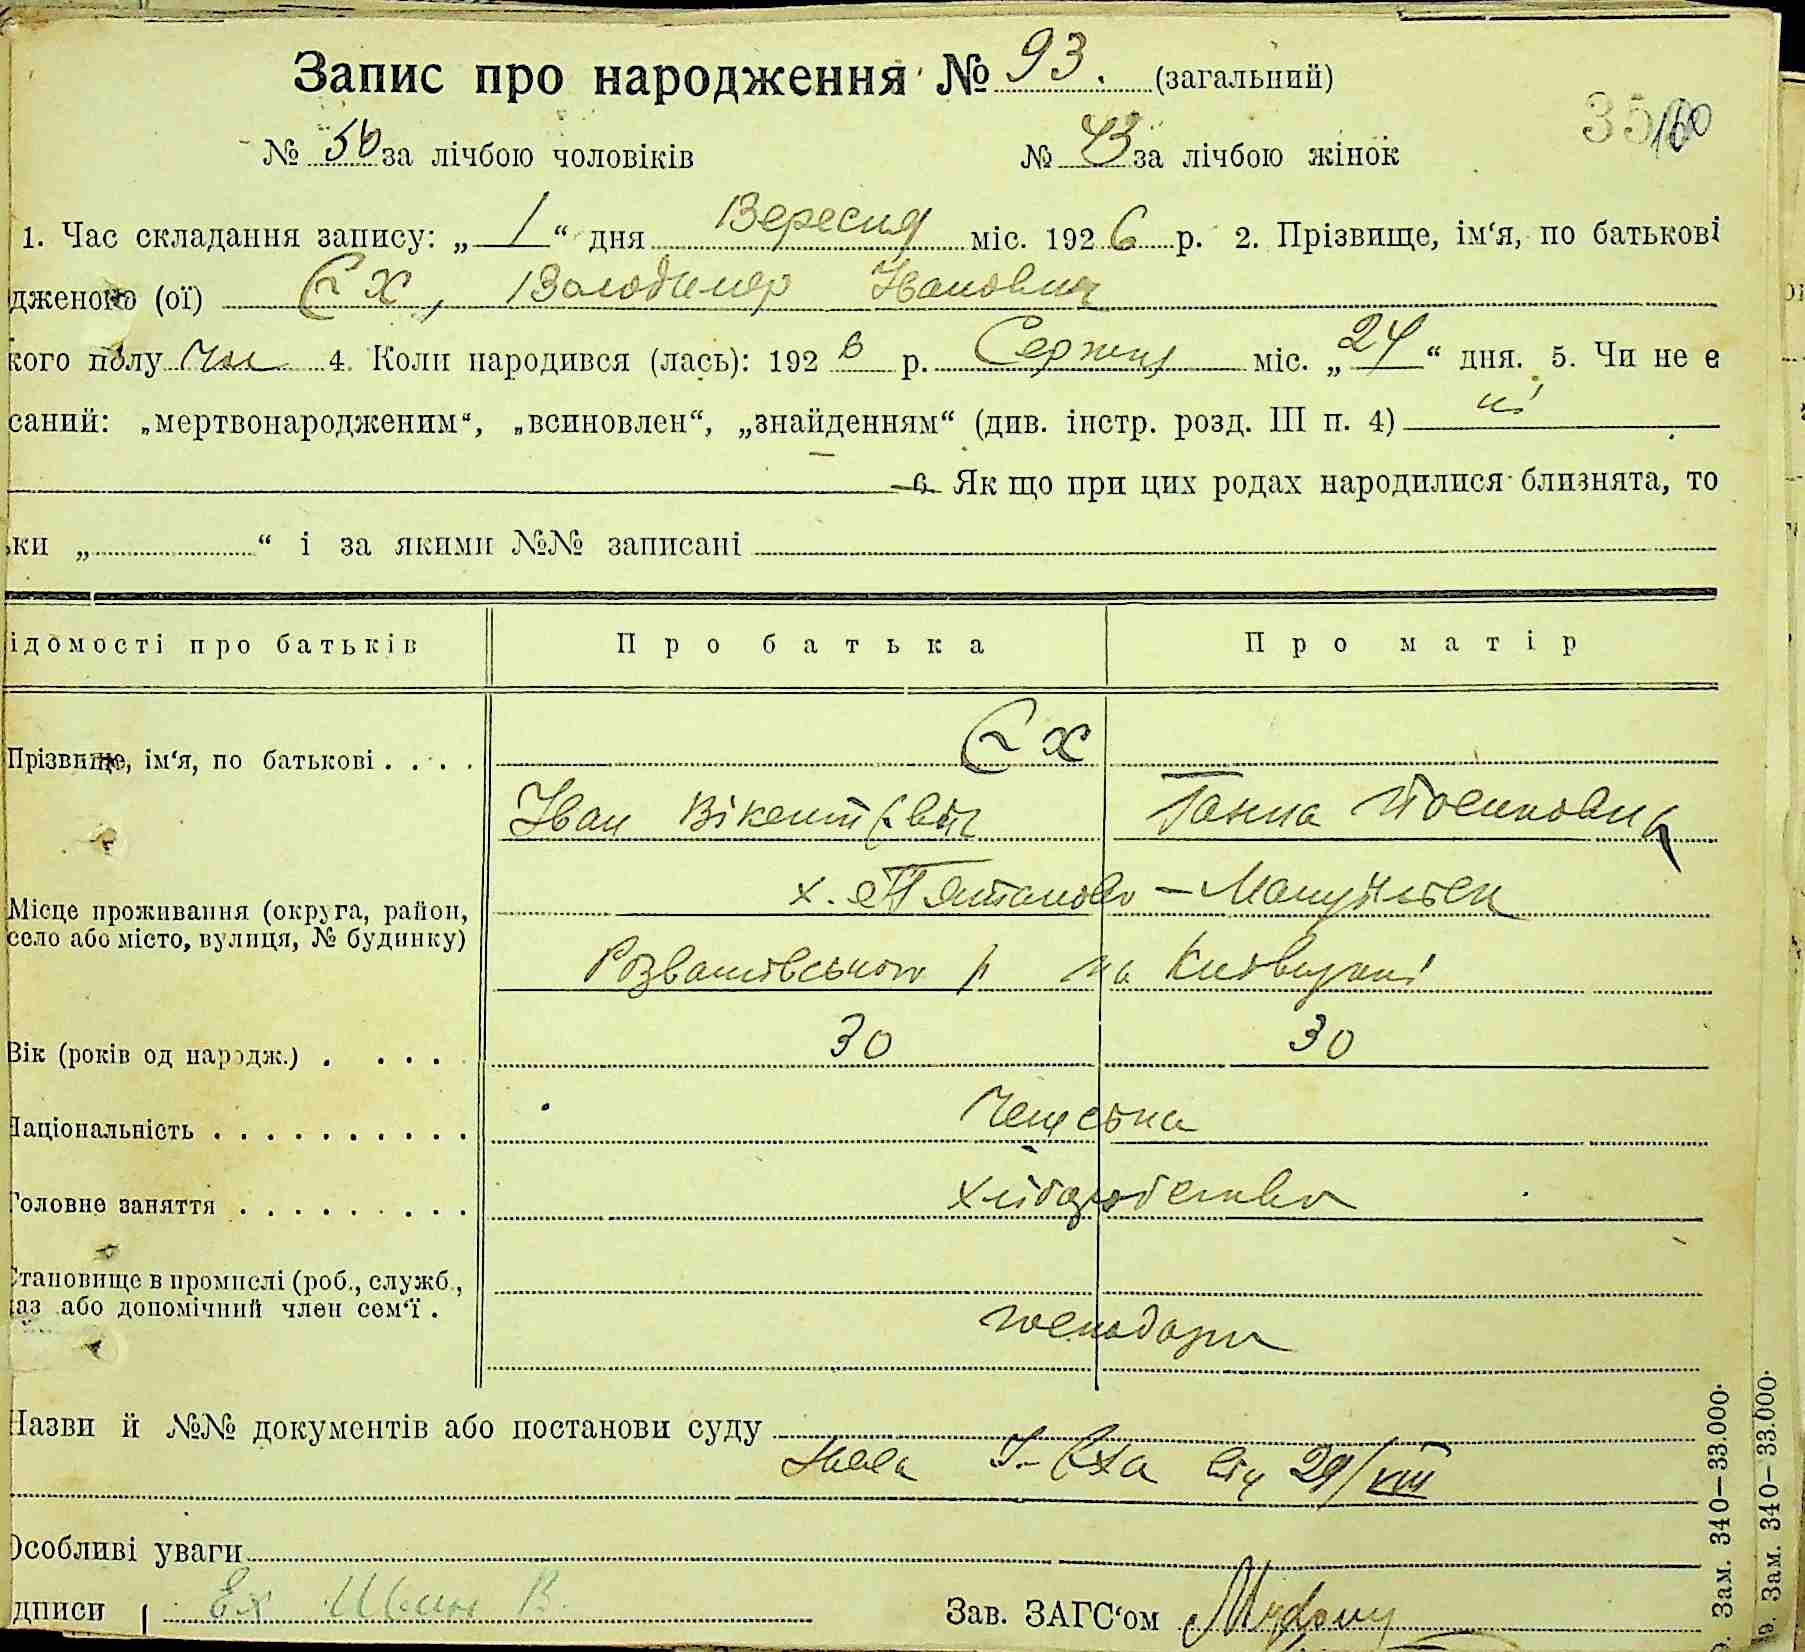 Запис про народження № 93. (загальний)
160
№ 50 за лічбою чоловіків № 43 за лічбою жінок
1. Час складання запису: „ 1 “ дня Вересня міс. 1926 р. 2. Прізвище, ім‘я, по батькові
дженого (ої) Єх, Володимер Іванович
кого полу чол 4. Коли народився (лась): 1926 р. Серпня міс. „ 24 “ дня. 5. Чи не є
саний: „мертвонародженим“, „всиновлен“, „знайденням“ (див. інстр. розд. III п. 4) ні
6. Як що при цих родах народилися близнята, то
ки „ “ і за якими №№ записані
ідомості про батьків Про батька Про матір
Прізвище, ім‘я, по батькові . . . . Єх
Іван Вікентієвич Ганна Йосиповна
Місце проживання (округа, район, село або місто, вулиця, № будинку) х.
Розважівського р на Київщині
Вік (років од народж.) . . . . 30 30
Національність . . . . . . . . . . Чешська
Головне заняття . . . . . . . . . хліборобство
Становище в промислі (роб., служб.,
аз або допомічний член сем‘ї . господари
Назви й №№ документів або постанови суду
І. Єха від 29/VIII
Особливі уваги
дписи Ех Иван В. Зав. ЗАГС‘ом
Зам. 340—33.000.
Зам. 340—33.000.